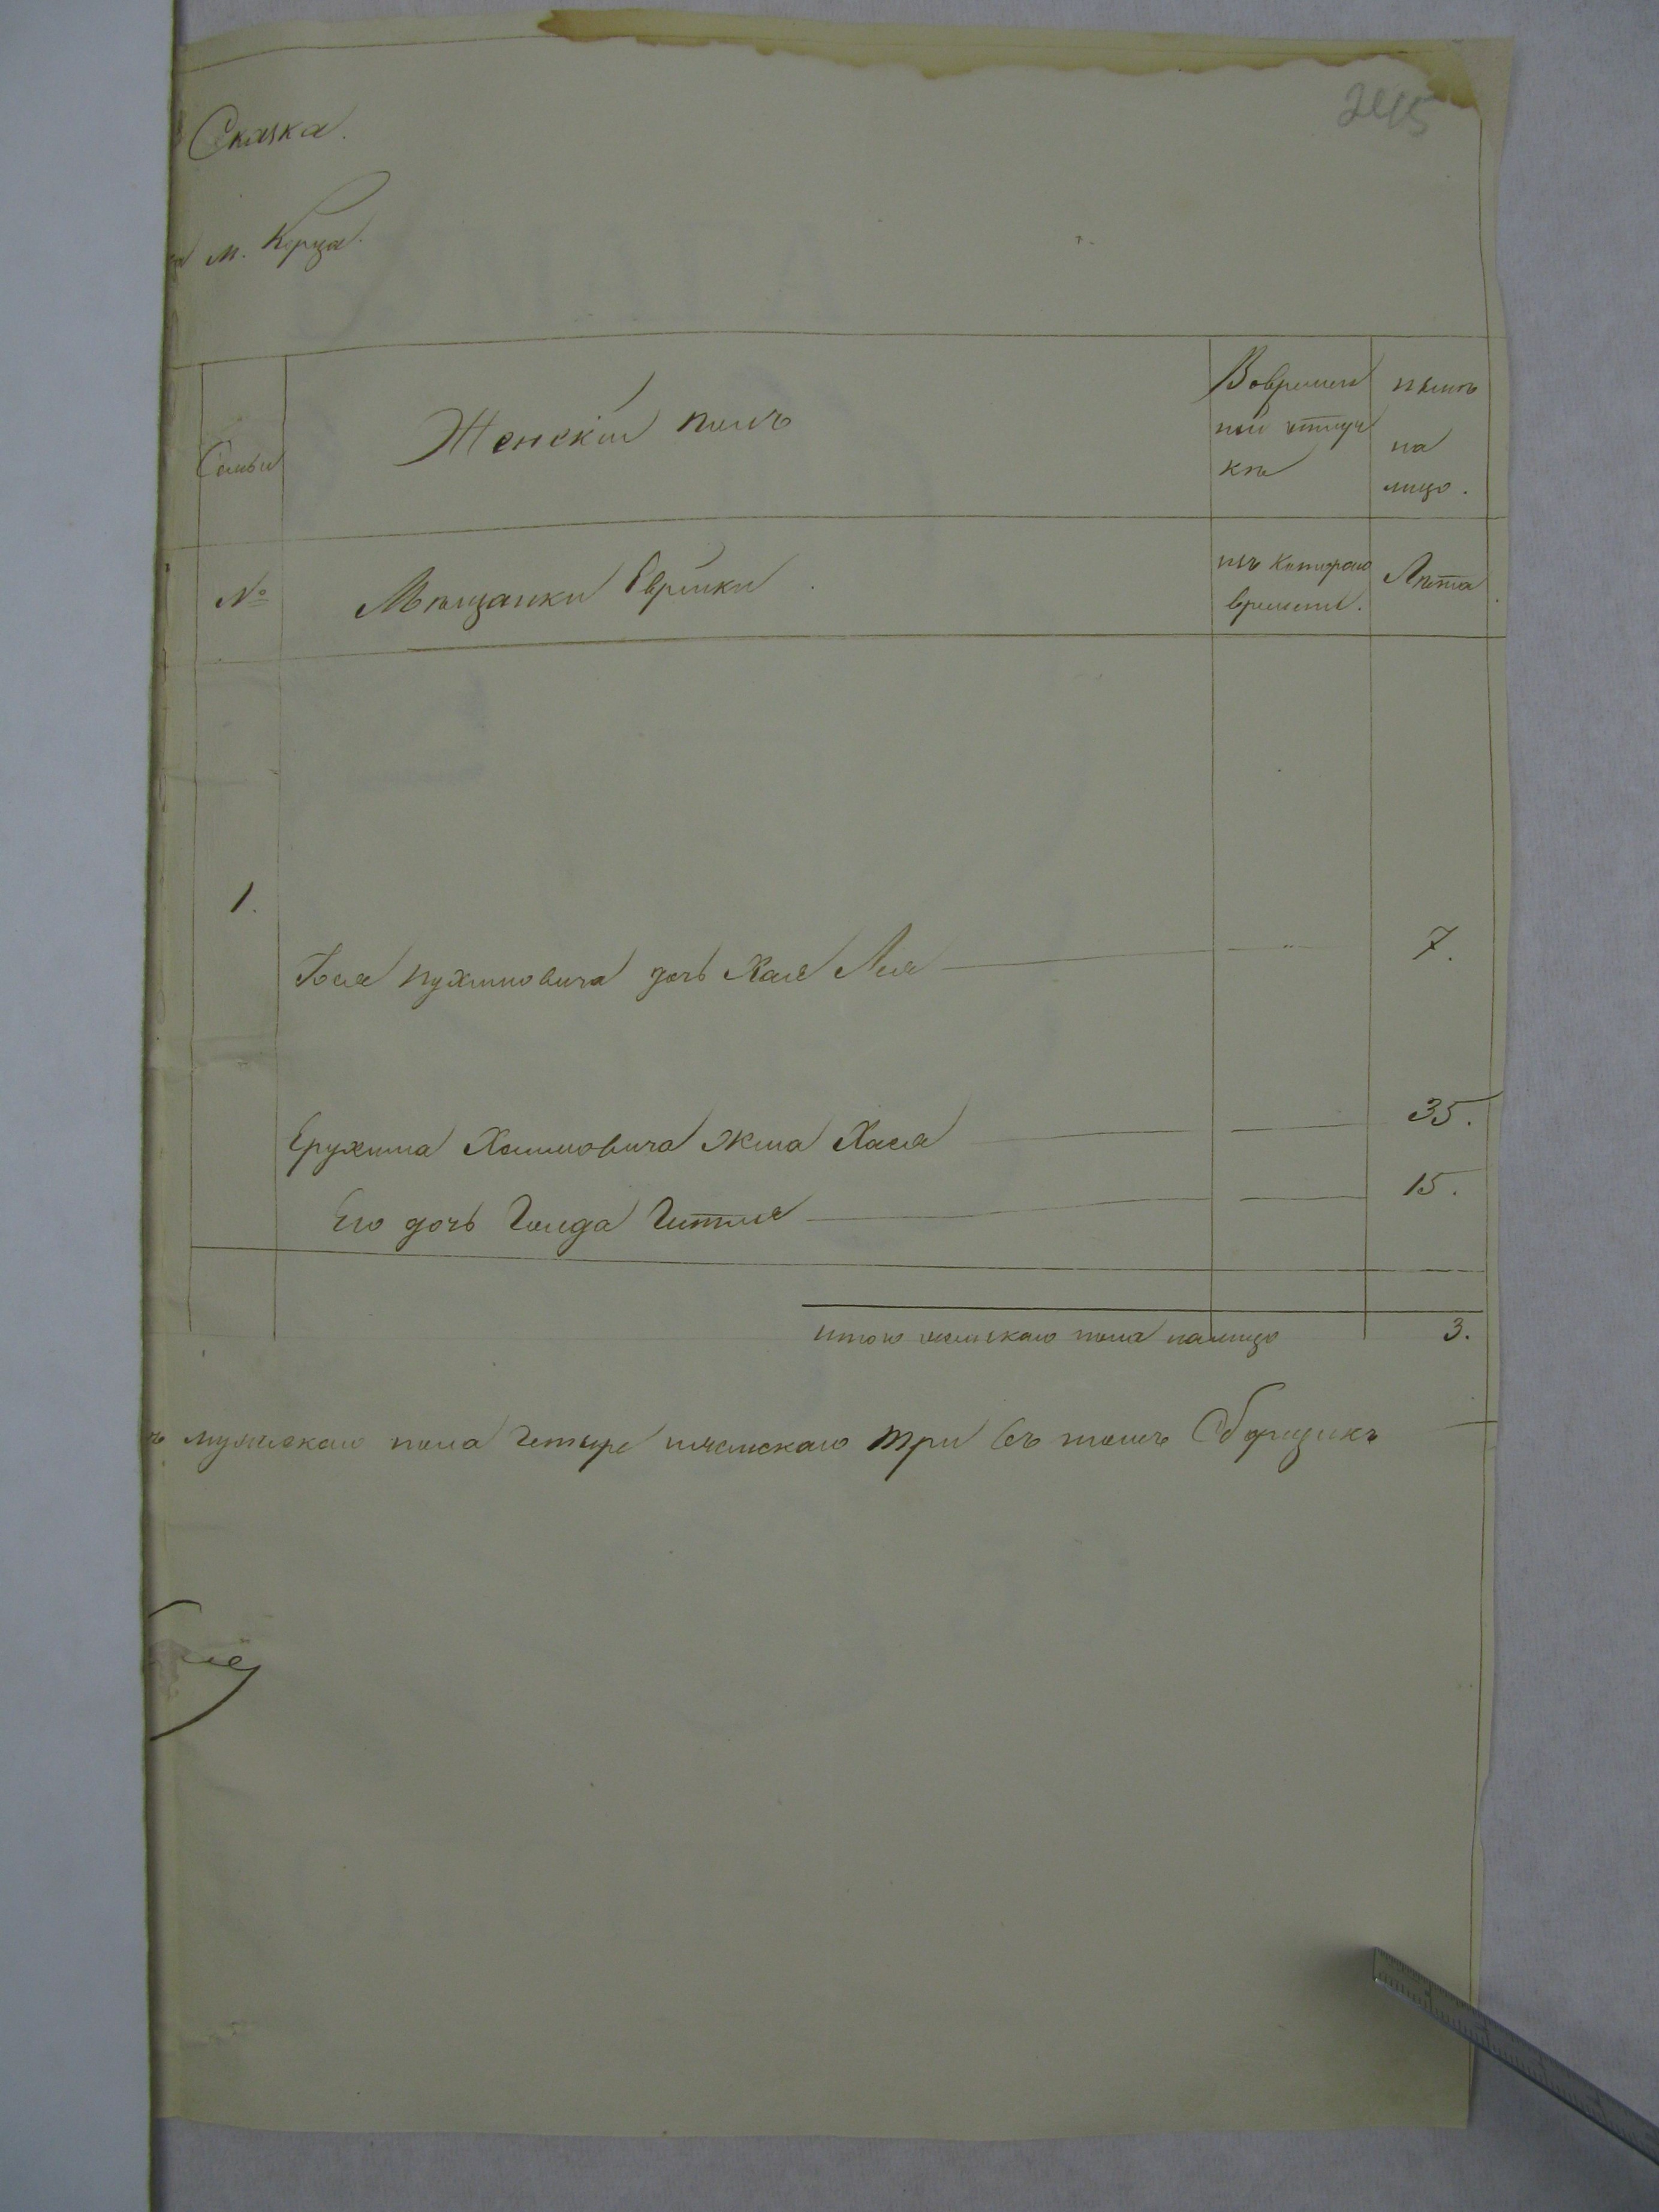 245
Сказка.
м. Корца.
Семьи
Женскій полъ
Вовремен
ной отлуч
кѣ
нынѣ
на
лицо.
№
Мѣщанки Еврейки.
изъ котораго
времени.
Лѣта.
1.
дочь Хая Лея — " — 7.
Ерухима Хаимовича жена Хася — — 35.
Его дочь Голда Гитля — — 15.
итого женскаго пола налицо 3.
мужескаго пола четыре иженскаго три въ томъ Сборщикъ